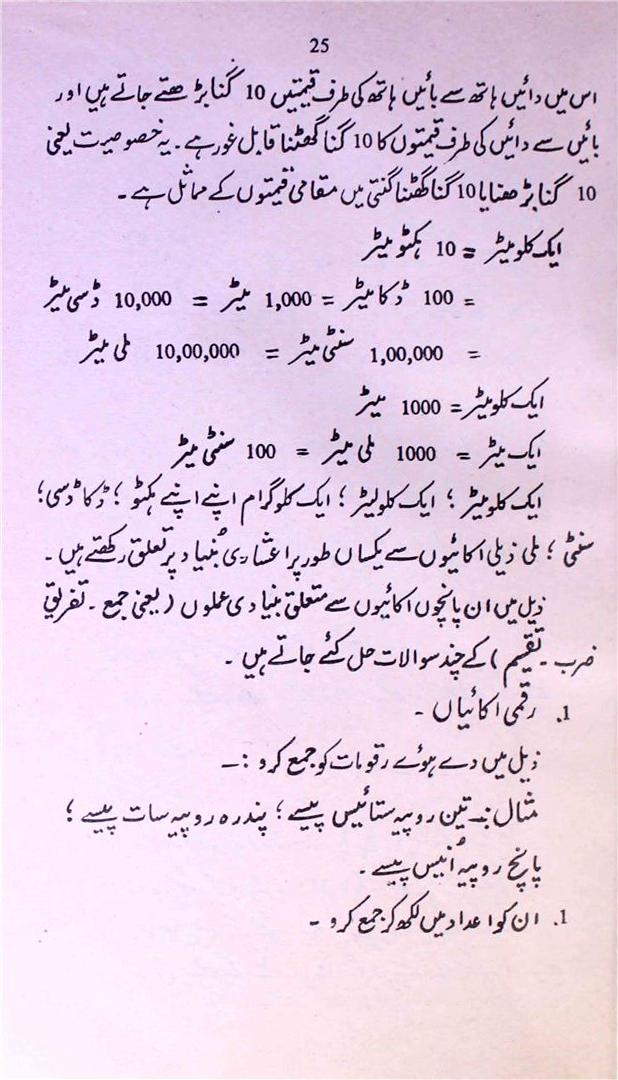 25
اس میں دائیں ہاتھ سے بائیں ہاتھ کی طرف قیمتیں 10 گنا بڑھتے جاتے ہیں اور
بائیں سے دائیں کی طرف قیمتوں کا 10 گنا گھٹنا قابل غور ہے۔ یہ خصوصیت یعنی
10 گنا بڑھنا یا 10 گنا گھٹنا گنتی میں مقامی قیمتوں کے مماثل ہے۔
ایک کلومیٹر = 10 ہکٹومیٹر
= 100 ڈکامیٹر = 1,000 میٹر = 10,000 ڈسی میٹر
= 1,00,000 سنٹی میٹر = 10,00,000 ملی میٹر
ایک کلومیٹر = 1000 میٹر
ایک میٹر = 1000 ملی میٹر = 100 سنٹی میٹر
ایک کلومیٹر ؛ ایک کلولیٹر ؛ ایک کلوگرام اپنے اپنے ہکٹو ؛ ڈکا ڈسی ؛
سنٹی ؛ ملی ذیلی اکائیوں سے یکساں طور پر اعشاری بُنیاد پر تعلق رکھتے ہیں۔
ذیل میں ان پانچوں اکائیوں سے متعلق بنیادی عملوں (یعنی جمع۔ تفریق
ضرب۔ تقسیم) کے چند سوالات حل کئے جاتے ہیں۔
1. رقمی اکائیاں۔
ذیل میں دے ہوئے رقومات کو جمع کرو :۔
مثال :۔ تین روپیہ ستائیس پیسے ؛ پندرہ روپیہ سات پیسے ؛
پانچ روپیہ اُنیس پیسے۔
1. ان کو اعداد میں لکھ کر جمع کرو۔